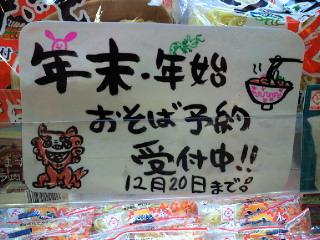 年末・年始
おそば予約
受付中!!
12月20日まで。